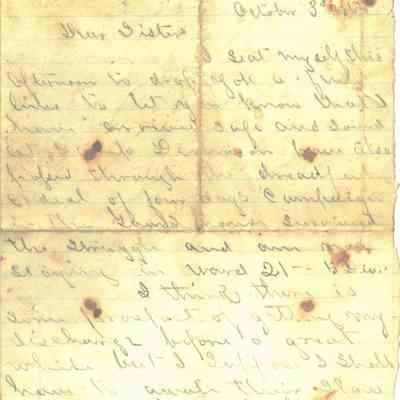 October 3rd
Dear Sister
I seat myself this
afternoon to drop you a few
lines to let you know that I
have arrived safe and sound
at Camp Dennison have also
passed through the dreadful
ordeal of four days Campaign
in the Guard house survived
the struggle and am now
staying in Ward 21
I think there is
some prospect of getting my
discharge before a great
while but I suppose I shall
have to await their slow